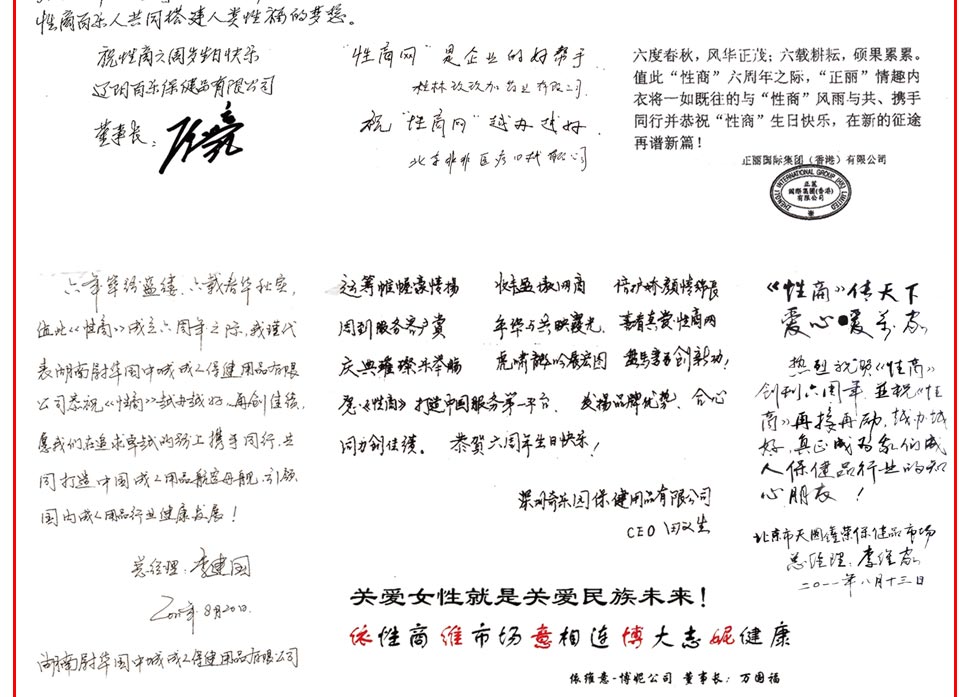 性商百乐人共同搭建人类性福的梦想。
祝性商六周岁生日快乐
辽阳百乐保健品有限公司
董事长：
“性商网”是企业的好帮手
桂林玫玫加药业有限公司
祝“性商网”越办越好
北京非非医疗口械有限公司
六度春秋，风华正茂；六载耕耘，硕果累累。
值此“性商”六周年之际，“正丽”情趣内
衣将一如既往的与“性商”风雨与共、携手
同行并恭祝“性商”生日快乐，在新的征途
再谱新篇！
正丽国际集团（香港）有限公司
ZHENGLI INTERNATIONAL GROUP (HK) LIMITED
正麗
國際集團(香港)
有限公司
六年筚路蓝缕，六载春华秋实，
值此《性商》成立六周年之际，我谨代
表湖南尉华国中城成人保健用品有限
公司恭祝《性商》越办越好、再创佳绩，
愿我们在追求卓越的路上携手同行，共
同打造中国成人用品航空母舰，引领
国内成人用品行业健康发展！
总经理：李建国
8月20日
湖南尉华国中城成人保健用品有限公司
运筹帷幄豪情扬
周到服务客户赏 年华与共映霞光 喜看真爱性商网
庆典璀璨乐举觞 虎啸龙吟展宏图
愿《性商》打造中国服务第一平台，发扬品牌优势，合心
同力创佳绩。恭贺六周年生日快乐！
深圳奇乐园保健用品有限公司
CEO
《性商》传天下
爱心暖万家
热烈祝贺《性商》
创刊六周年，并祝《性
商》再接再励，越办越
好，真正成为我们成
人保健品行业的知
心朋友！
北京市天圆鑫荣保健品市场
总经理：李维家
二〇一一年八月十三日
关爱女性就是关爱民族未来！
依性商维市场意相连博大志妮健康
依维意-博妮公司 董事长：万国福